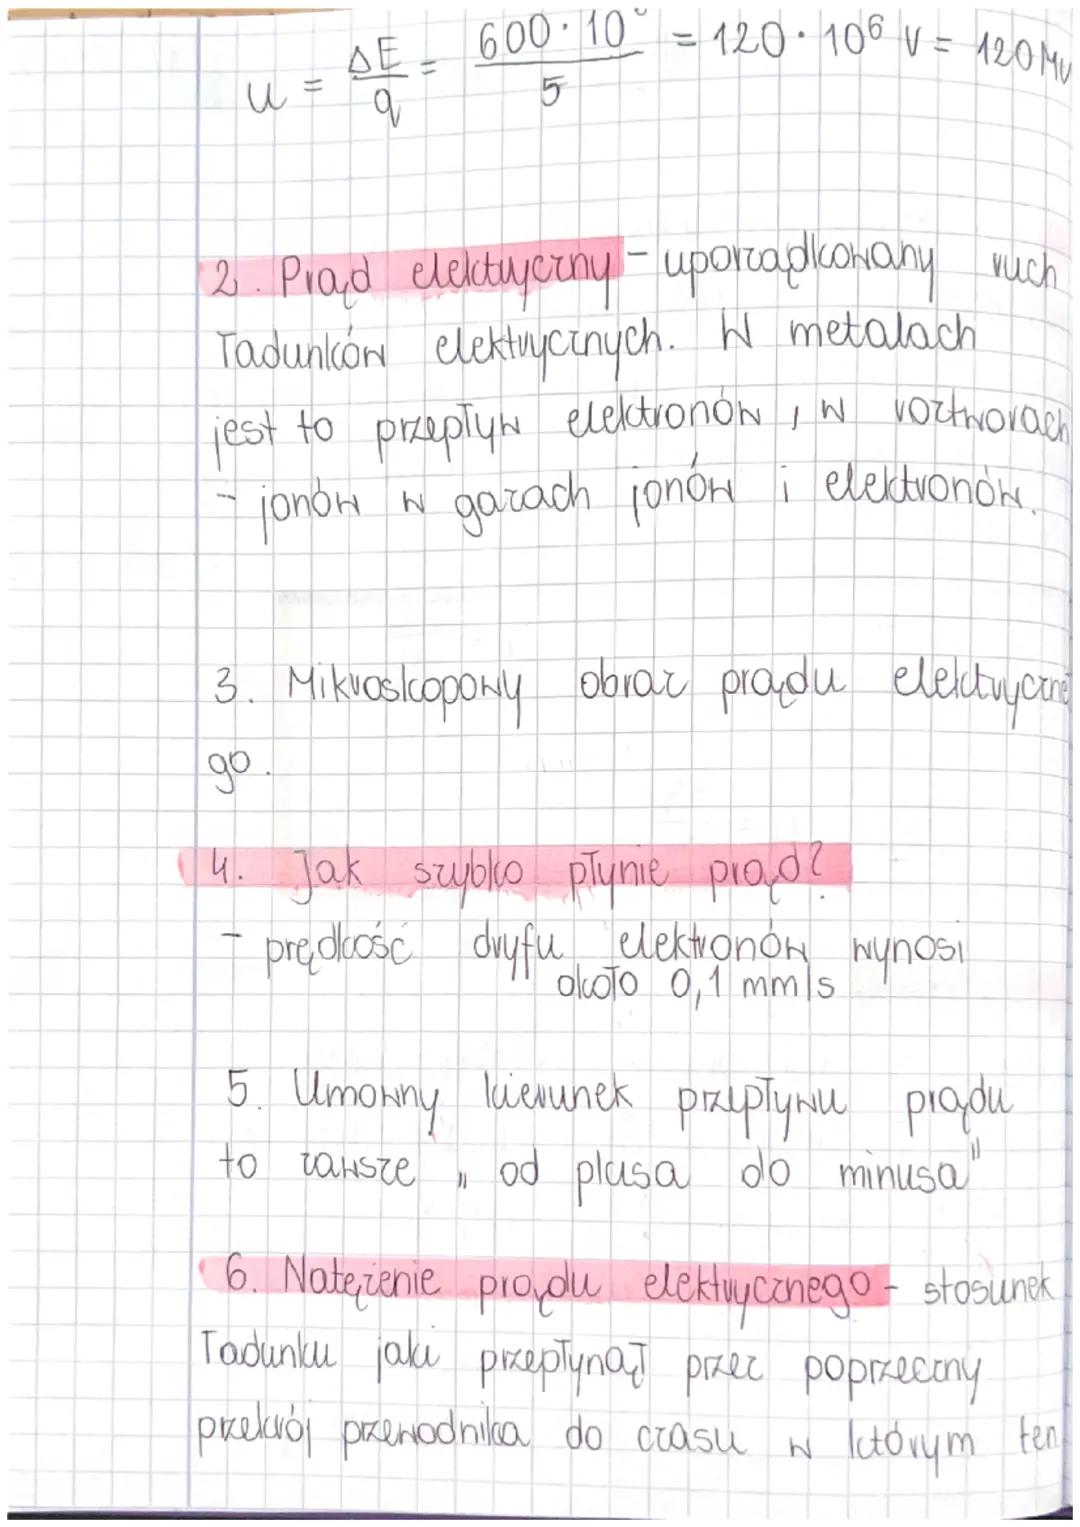 u = ΔE/q = 600·10⁶/5 = 120·10⁶ V = 120MV
2. Prąd elektryczny - uporządkowany ruch
ładunków elektrycznych. W metalach
jest to przepływ elektronów, w roztworach
- jonów w gazach jonów i elektronów.
3. Mikroskopowy obraz prądu elektryczne
go.
4. Jak szybko płynie prąd?
- prędkość dryfu elektronów wynosi
około 0,1 mm/s
5. Umowny kierunek przepływu prądu
to zawsze „od plusa do minusa"
6. Natężenie prądu elektrycznego - stosunek
ładunku jaki przepłynął przez poprzeczny
przekrój przewodnika do czasu w którym ten